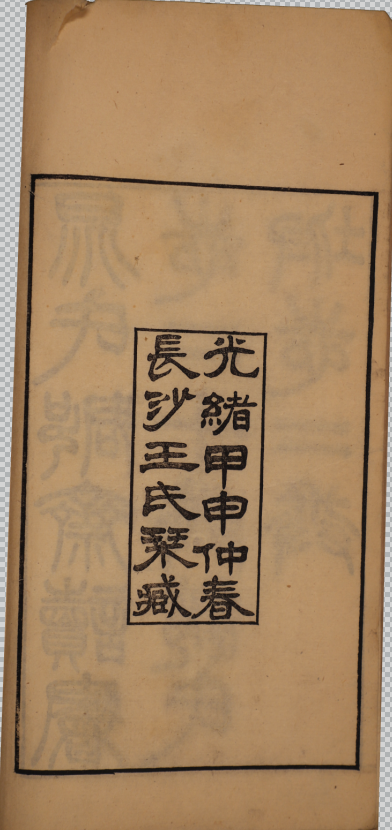 光緒甲申仲春
長沙王氏栞臧